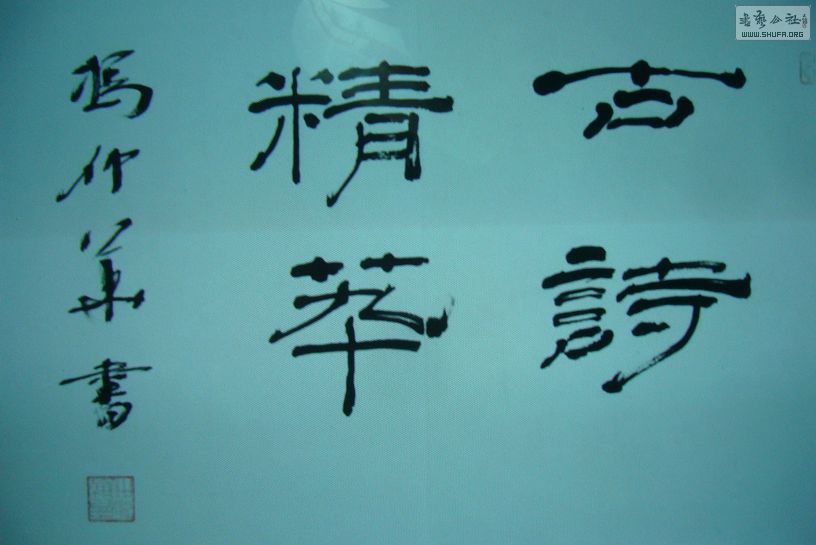 古詩
精萃
馮仲華書
書藝公社
WWW.SHUFA.ORG